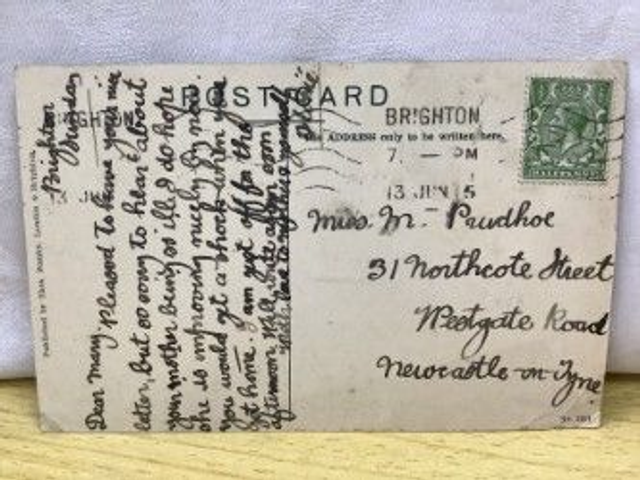 POST CARD
THE ADDRESS only to be written here.
BRIGHTON
7. — PM
13 JUN 15
HALFPENNY
Miss. M. Prudhoe
31 Northcote Street
Westgate Road
Newcastle-on-Tyne.
Brighton
Sunday
Dear Mary, Pleased to have your nice
letter, but so sorry to hear about
your mother being so ill, I do hope
she is improving nicely by now.
You would get a shock when you
got home. I am just off for the
afternoon, will write again soon
Love to all &
yourself